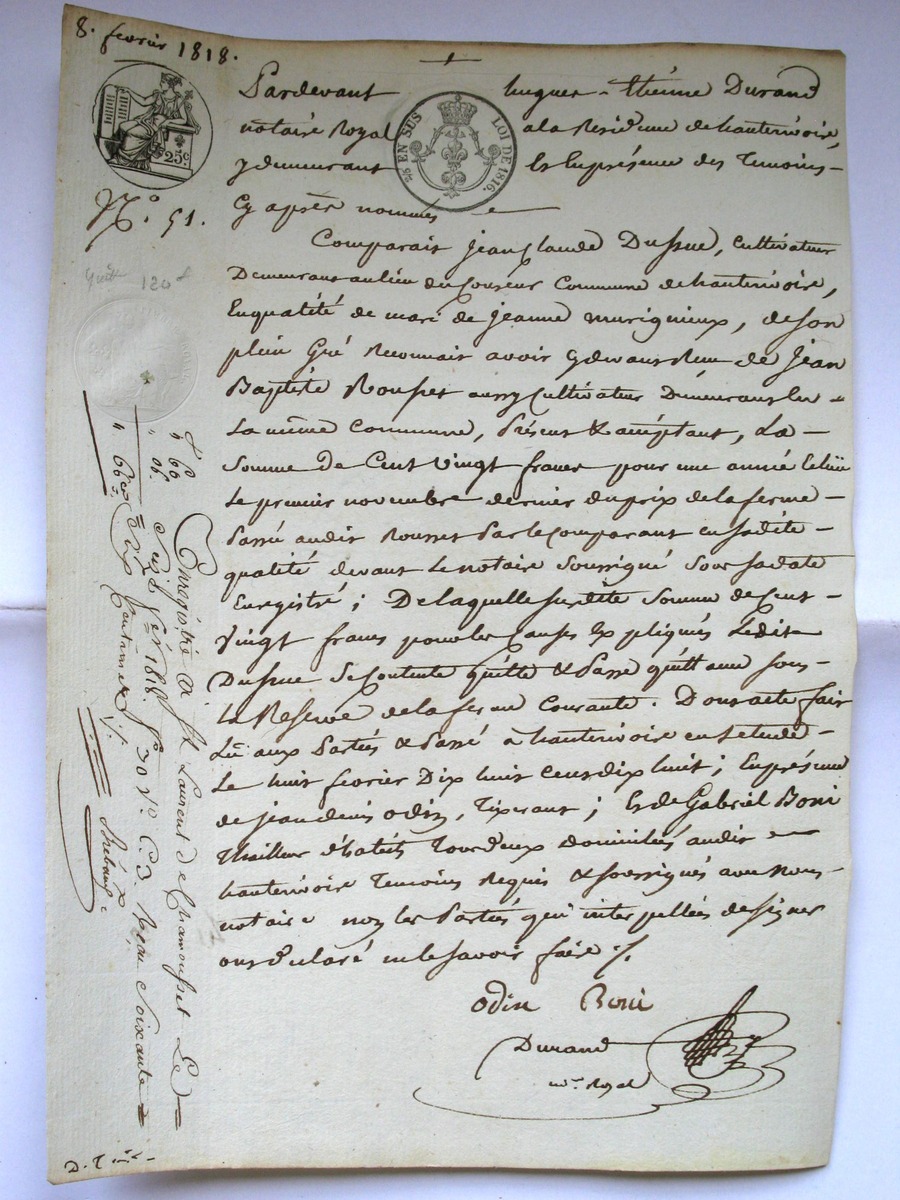 8. fevrier 1818.
Pardevant hugues-Etiénne Durand
notaire Royal ala Residence de hauterivoire,
y demeurant Et En présence des Temoins-
Cy aprés nommés
25c
EN SUS LOI DE 1816.
N.° 51.
quitt 120 f
Comparait jean Claude Dussuc, Cultivateur
Demeurant au lieu du Commune de hauterivoire,
En qualité de mari de jeanne murignieux, de son
plein Gré Reconnait avoir cy devant Recu de jean
Baptiste Rousset aussy Cultivateur Demeurant En
La même Commune, Présent & acceptant, La-
Somme de Cent vingt francs pour une année Echüe
Le premier novembre dernier du prix de la ferme-
Passé audit Rousset Par le Comparant en sa dite-
qualité devant Le notaire Soussigné Sous sa date
Enregistré; De laquelle susdite Somme de Cent-
Vingt francs pour les Causes Expliqués Ledit
Dussuc Se Contente quitte & Passe quittance sous-
La Reserve de la ferme Courante. Dont acte fait
Lu aux Partiés & Passé à hauterivoire en Letude-
Le huit fevrier Dix huit cent dix huit; En présence
de jean denis odin, Tixerant; Et de Gabriel Boni
Thailleur d'habits Tous deux domiciliés audit
hauterivoire Temoins Requis & soussignés avec Nous-
notaire non les Partiés qui interpellées de signer
ont déclaré ne le savoir faire ./.
odin Boni
Durand
n.re Royal
Enregistré a St Laurent de Chamousset Le
huit fer 1818 f° 30 v.° C. 3. Reçu Soixante
Six Centimes ./.
" 60
" 06
" 66